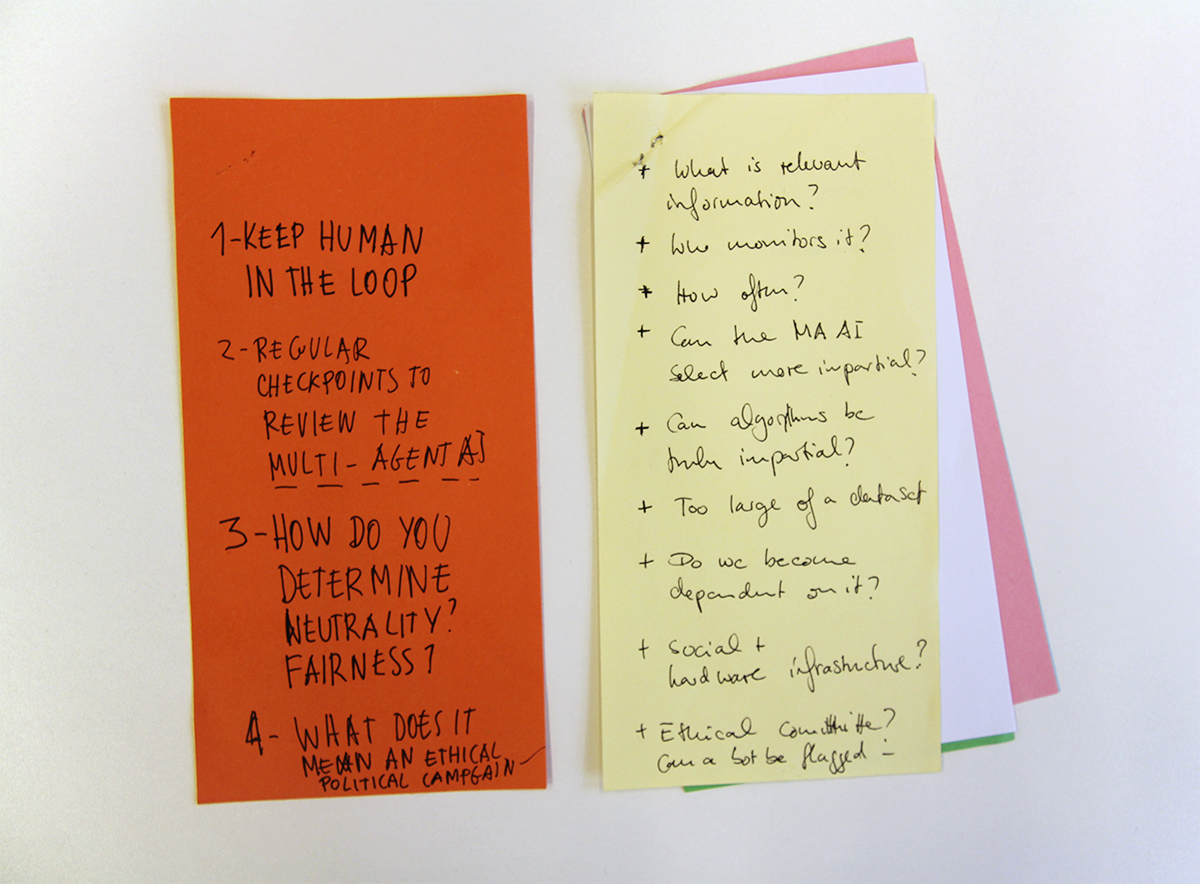 1-KEEP HUMAN
IN THE LOOP
2-REGULAR
CHECKPOINTS TO
REVIEW THE
MULTI-AGENT AI
3-HOW DO YOU
DETERMINE
NEUTRALITY?
FAIRNESS?
4- WHAT DOES IT
MEAN AN ETHICAL
POLITICAL CAMPGAIN-
+ What is relevant
information?
+ Who monitors it?
+ How often?
+ Can the MA AI
select more impartial?
+ Can algorithms be
truly impartial?
+ Too large of a dataset
+ Do we become
dependent on it?
+ Social +
hardware infrastructure?
+ Ethical committe?
Can a bot be flagged -